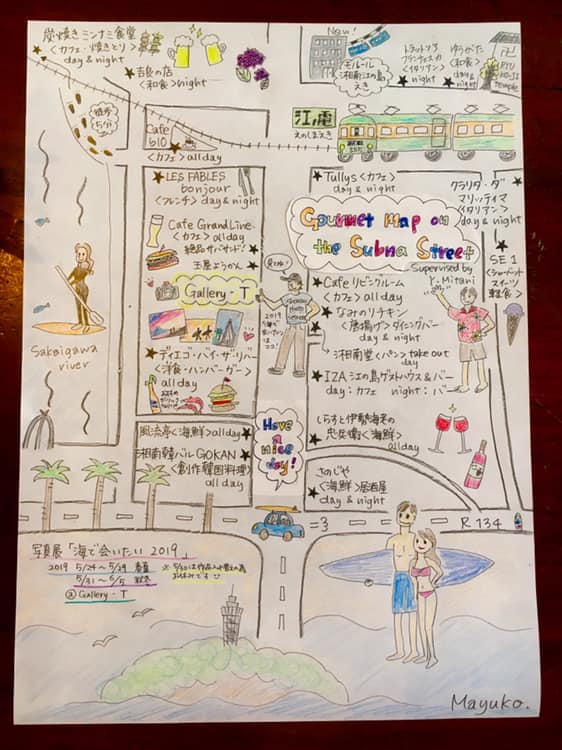 炭焼き ミンナミ食堂
<カフェ・焼きとり>
day & night
吉良の店
<和食>night
New!
モノレール
湘南江の島
えき
トラットリア
フランチェスカ
<イタリアン>
night
ゆうがた
<和食>
day &
night
RYU
KO-JI
Temple
徒歩
5分
Cafe
610
<カフェ>all day
江ノ電
えのしまえき
LES FABLES
bonjour
<フレンチ>day & night
Cafe GrandLine
<カフェ>all day
絶品サバサンド
玉屋ようかん
Gallery・T
ディエゴ・バイ・ザ・リバー
<洋食・ハンバーガー>
all day
風流亭<海鮮>all day
湘南韓バル GOKAN
<創作韓国料理>
all day
Tullys<カフェ>
day & night
Gourmet Map on
the Subna Street
Supervised by
Y. Mitani
クラリタ・ダ・
マリッティマ
<イタリアン>
day & night
SE1
スイーツ
軽食>
Cafe リビングルーム
<カフェ>all day
なみのリチキン
<唐揚げ>ダイニングバー
day & night
湘南堂<パン>take out
day
IZA江の島ゲストハウス&バー
day:カフェ night:バー
しらすと伊勢海老の
<海鮮>
all day
さのじや
<海鮮>居酒屋
day & night
2019
Sakaigawa
river
Have
a
nice
day!
R 134
写真展「海で会いたい 2019」
2019 5/24~5/29
5/31~6/5
@Gallery・T
Mayuko.